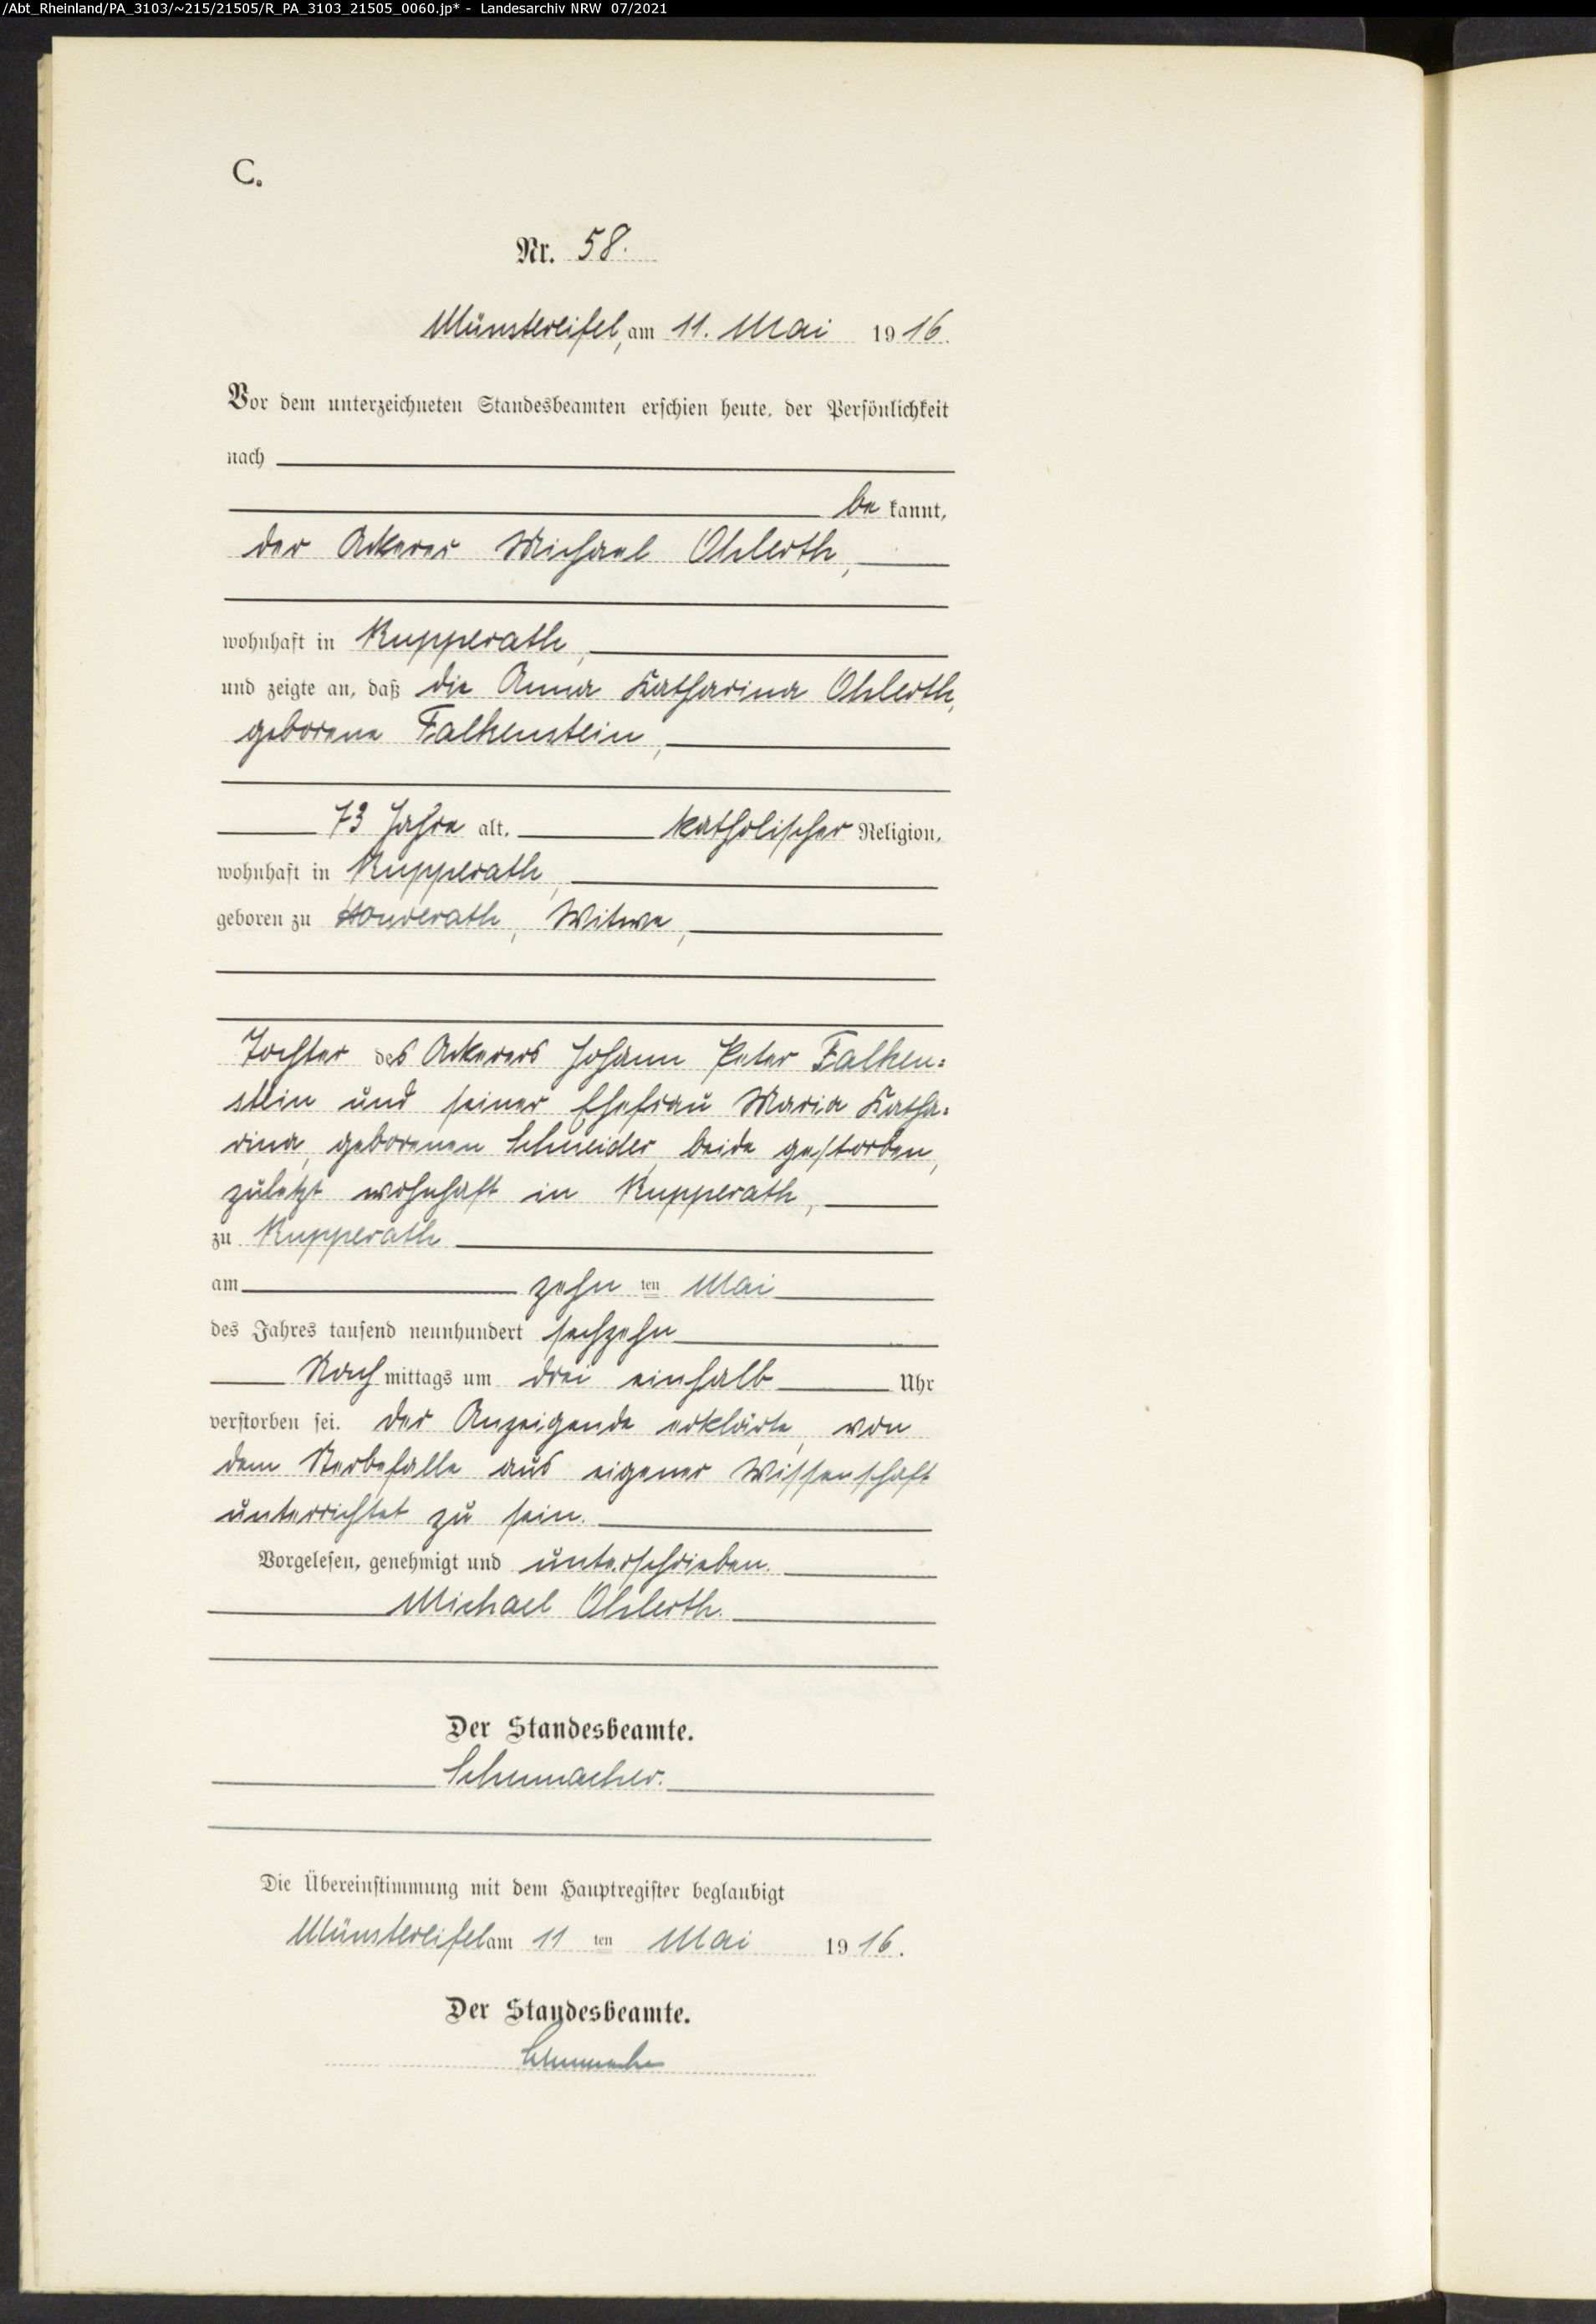 /Abt_Rheinland/PA_3103/~215/21505/R_PA_3103_21505_0060.jp* - Landesarchiv NRW 07/2021
C.
Nr. 58.
Münstereifel, am 11. Mai 1916.
Vor dem unterzeichneten Standesbeamten erschien heute, der Persönlichkeit
nach
bekannt,
der Ackerer Michael Ohlerth,
wohnhaft in Rupperath,
und zeigte an, daß die Anna Katharina Ohlerth,
geborene Falkenstein,
73 Jahre alt, katholischer Religion,
wohnhaft in Rupperath,
geboren zu Honverath, Witwe,
Tochter des Ackerers Johann Peter Falken=
stein und seiner Ehefrau Maria Katha=
rina, geborenen Schneider, beide gestorben,
zuletzt wohnhaft in Rupperath,
zu Rupperath
am zehnten Mai
des Jahres tausend neunhundert sechzehn
Nachmittags um drei einhalb Uhr
verstorben sei. Der Anzeigende erklärte, von
dem Sterbefalle aus eigener Wissenschaft
unterrichtet zu sein.
Vorgelesen, genehmigt und unterschrieben.
Michael Ohlerth.
Der Standesbeamte.
Schumacher.
Die Übereinstimmung mit dem Hauptregister beglaubigt
Münstereifel am 11 ten Mai 1916.
Der Standesbeamte.
Schumacher